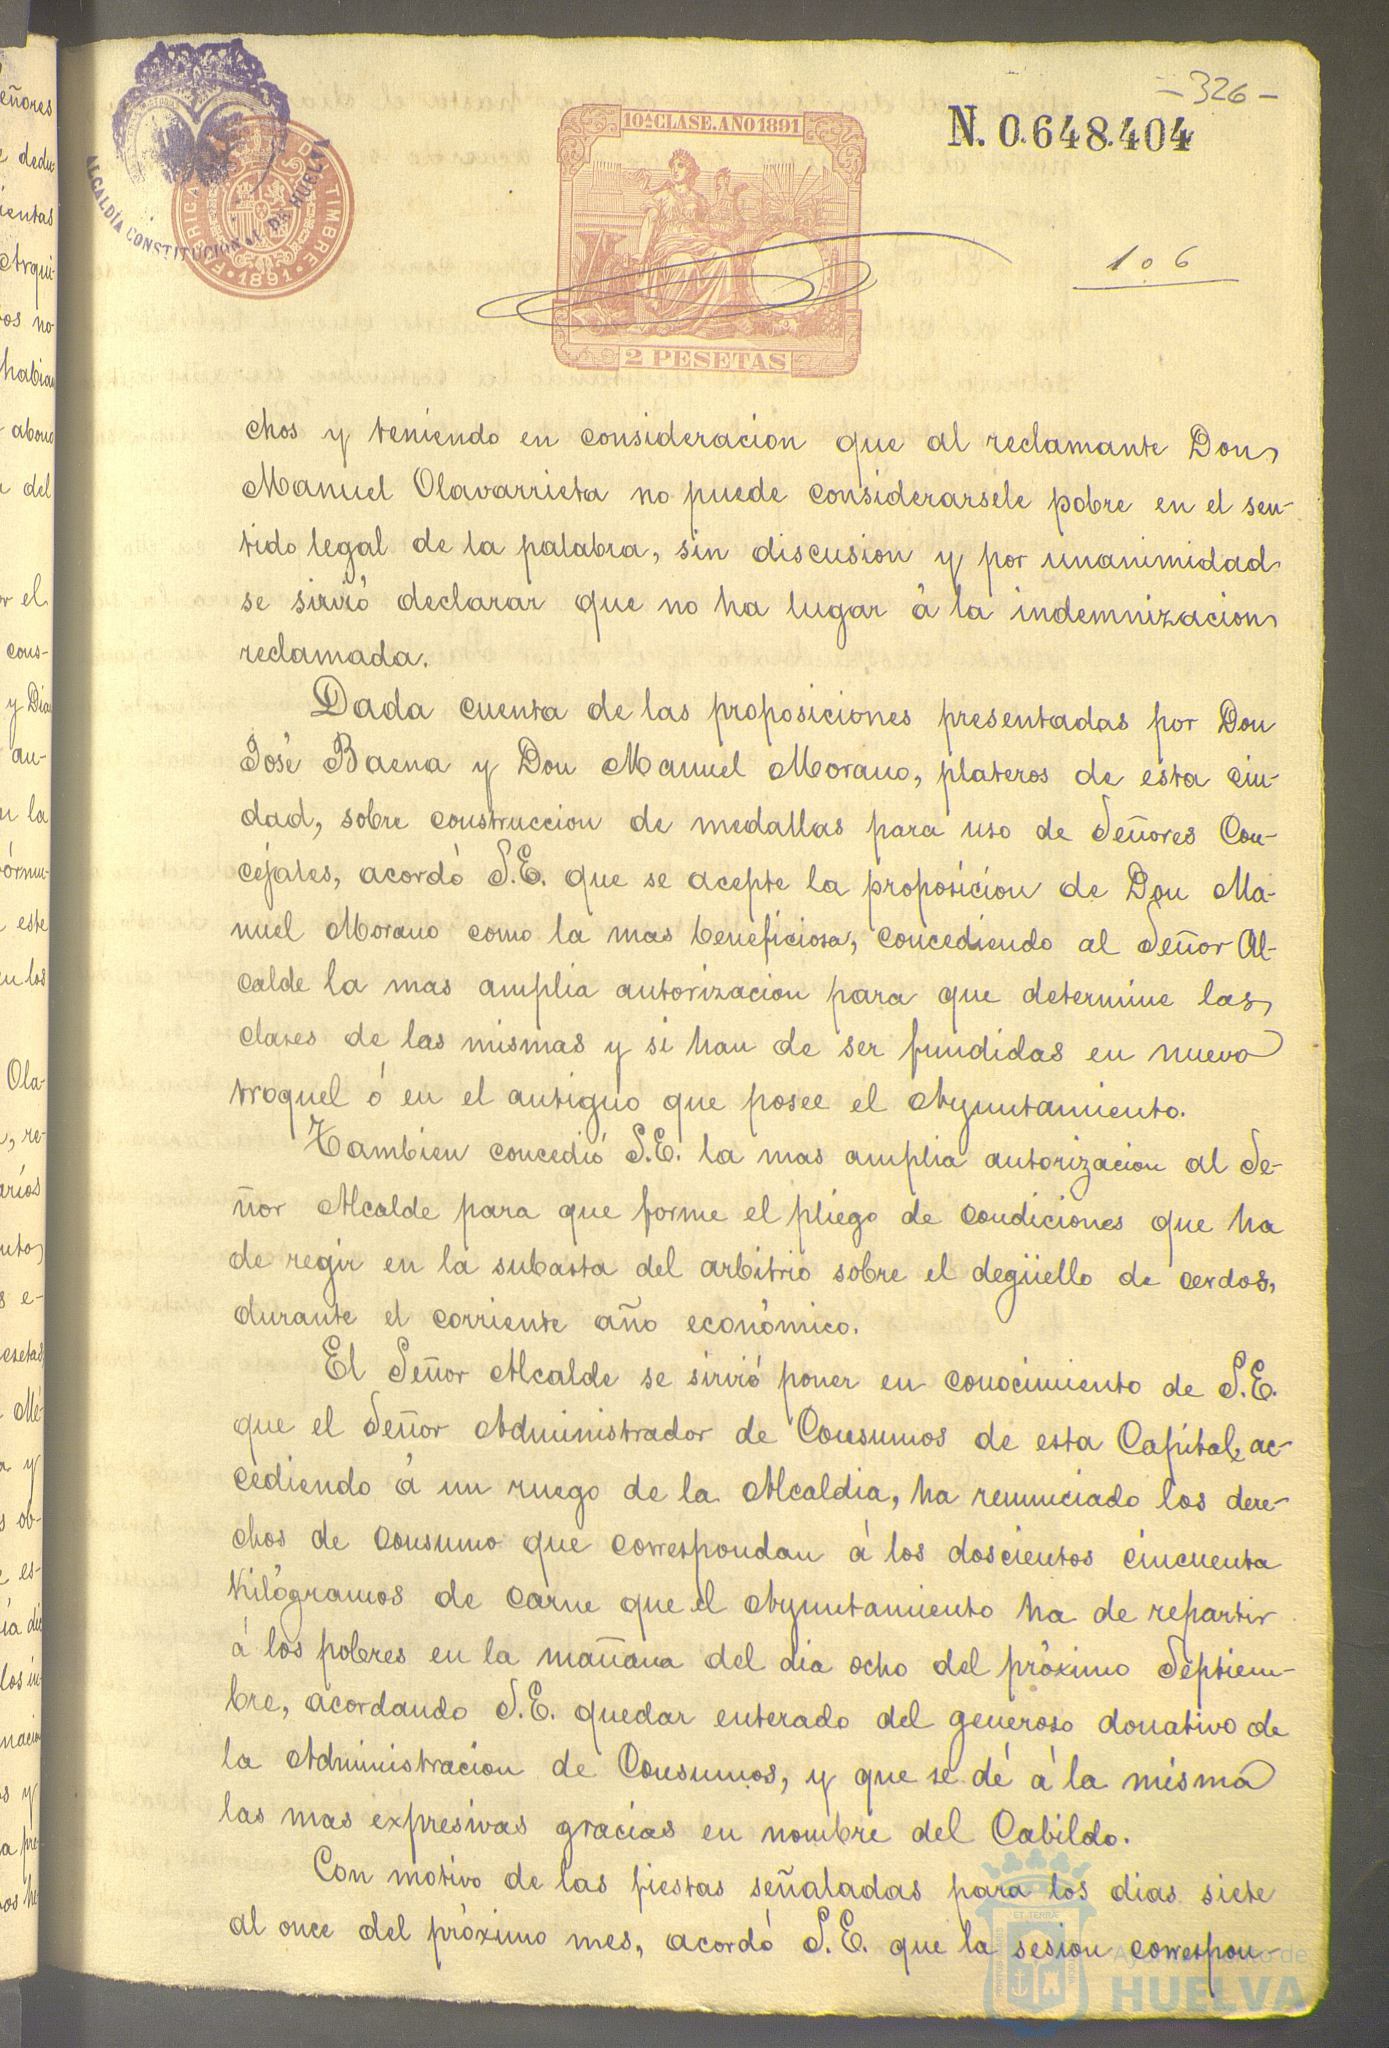 - 326 -
N. 0.648.404
10ª CLASE. AÑO 1891
ALCALDÍA CONSTITUCIONAL DE HUELVA
FABRICA DEL TIMBRE
1891
2 PESETAS
106
chos y teniendo en consideracion que al reclamante Don
Manuel Olavarrieta no puede considerarsele pobre en el sen-
tido legal de la palabra, sin discusion y por unanimidad
se sirvió declarar que no ha lugar á la indemnizacion
reclamada.
Dada cuenta de las proposiciones presentadas por Don
José Baena y Don Manuel Morano, plateros de esta ciu-
dad, sobre construccion de medallas para uso de Señores Con-
cejales, acordó S.E. que se acepte la proposicion de Don Ma-
nuel Morano como la mas beneficiosa, concediendo al Señor Al-
calde la mas amplia autorizacion para que determine las
clases de las mismas y si han de ser fundidas en nuevo
troquel ó en el antiguo que posee el Ayuntamiento.
Tambien concedió S.E. la mas amplia autorizacion al Se-
ñor Alcalde para que forme el pliego de condiciones que ha
de regir en la subasta del arbitrio sobre el degüello de cerdos,
durante el corriente año económico.
El Señor Alcalde se sirvió poner en conocimiento de S.E.
que el Señor Administrador de Consumos de esta Capital, ac-
cediendo á un ruego de la Alcaldia, ha renunciado los dere-
chos de consumo que correspondan á los doscientos cincuenta
kilógramos de carne que el Ayuntamiento ha de repartir
á los pobres en la mañana del dia ocho del próximo Septiem-
bre, acordando S.E. quedar enterado del generoso donativo de
la Administracion de Consumos, y que se dé á la misma
las mas expresivas gracias en nombre del Cabildo.
Con motivo de las fiestas señaladas para los dias siete
al once del próximo mes, acordó S.E. que la sesion correspon-
Ayuntamiento de
HUELVA